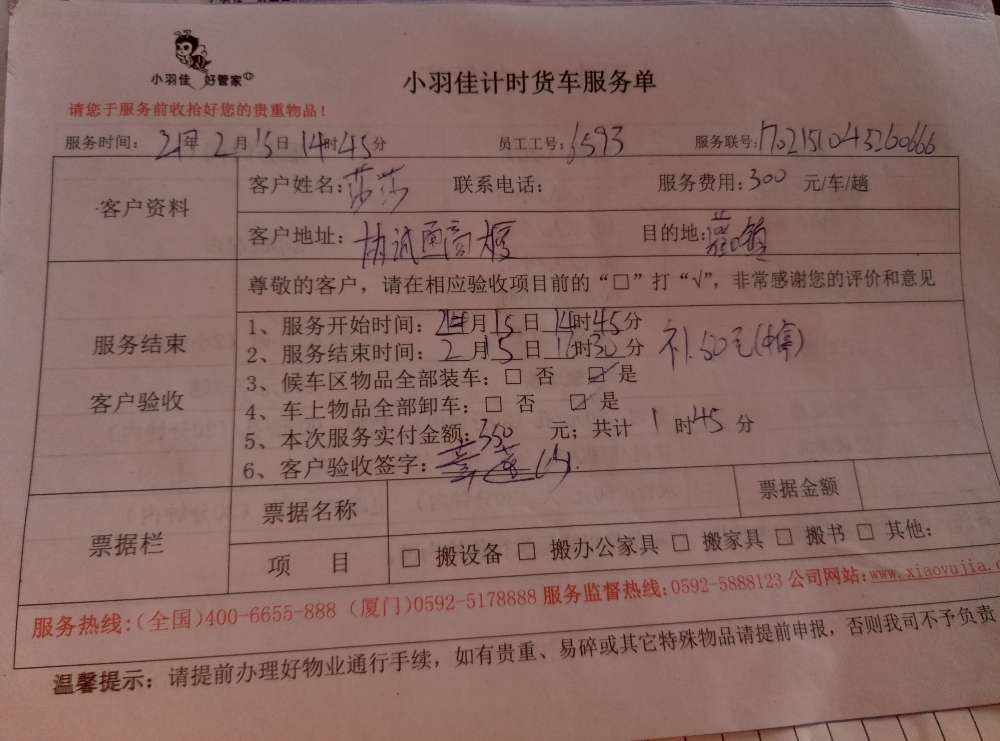 小羽佳 好管家
小羽佳计时货车服务单
请您于服务前收拾好您的贵重物品！
服务时间：21年2月15日14时45分 员工工号：6593 服务联号：1702151045260666
客户资料
客户姓名：莎莎 联系电话： 服务费用：300 元/车/趟
客户地址： 目的地：
尊敬的客户，请在相应验收项目前的“□”打“√”，非常感谢您的评价和意见
服务结束
客户验收
1、服务开始时间：2月15日14时45分
2、服务结束时间：2月15日16时30分
补50元
3、候车区物品全部装车：□ 否 ☑ 是
4、车上物品全部卸车：□ 否 ☑ 是
5、本次服务实付金额：350 元；共计 1 时45分
6、客户验收签字：
票据栏
票据名称 票据金额
项 目 □ 搬设备 □ 搬办公家具 □ 搬家具 □ 搬书 □ 其他：
服务热线：（全国）400-6655-888（厦门）0592-5178888 服务监督热线：0592-5888123 公司网站：www.xiaoyujia.c
温馨提示：请提前办理好物业通行手续，如有贵重、易碎或其它特殊物品请提前申报，否则我司不予负责